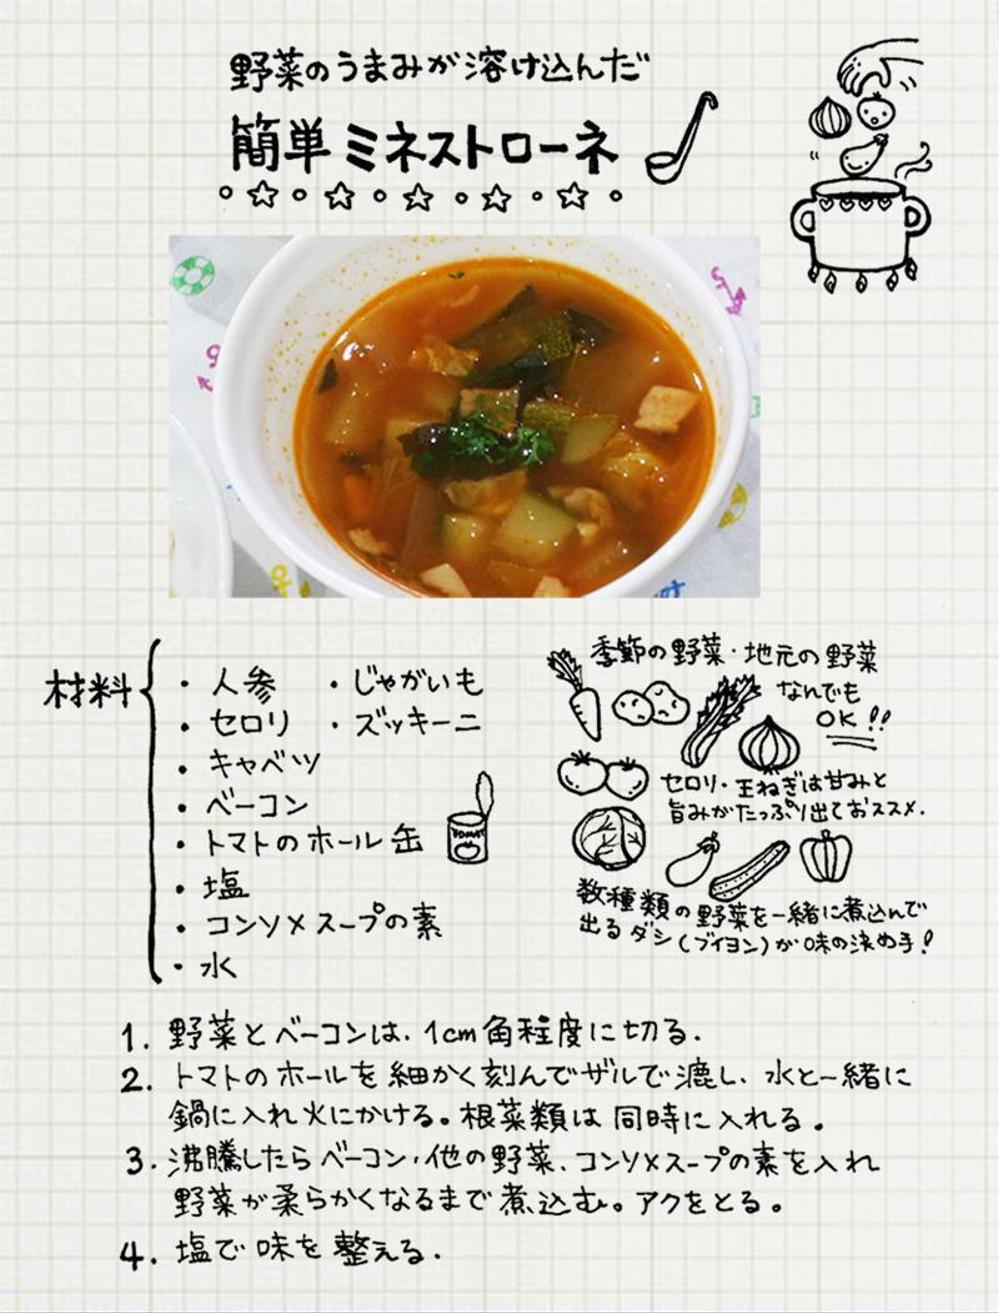 野菜のうまみが溶け込んだ
簡単ミネストローネ
材料
・人参 ・じゃがいも
・セロリ ・ズッキーニ
・キャベツ
・ベーコン
・トマトのホール缶
・塩
・コンソメスープの素
・水
TOMATO
季節の野菜・地元の野菜
なんでも
OK!!
セロリ・玉ねぎは甘みと
旨みがたっぷり出ておススメ.
数種類の野菜を一緒に煮込んで
出るダシ(ブイヨン)が味の決め手!
1. 野菜とベーコンは、1cm角程度に切る.
2. トマトのホールを細かく刻んでザルで漉し、水と一緒に
鍋に入れ火にかける。根菜類は同時に入れる。
3. 沸騰したらベーコン・他の野菜、コンソメスープの素を入れ
野菜が柔らかくなるまで煮込む。アクをとる。
4. 塩で味を整える.